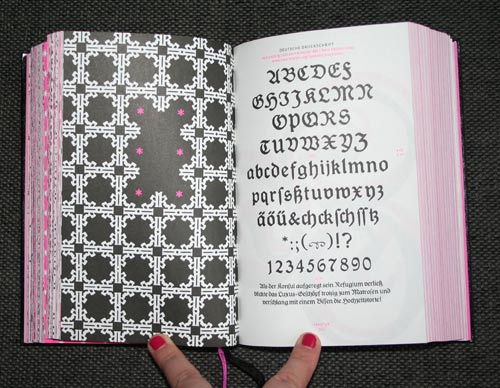 * *
* *
* *
DEUTSCHE DRUCKSCHRIFT
ABCDEF
GHIJKLMN
OPQRS
TUVWXYZ
abcdefghijklmno
pqrſsßtuvwxyz
äöü&chckſchſſtz
*:;()!?
1234567890
Als der Konſul aufgeregt ſein Refugium verließ,
blickte das Luxus-Geſchöpf trotzig zum Matroſen und
verſchlang mit einem Biſſen die Hochzeitstorte!